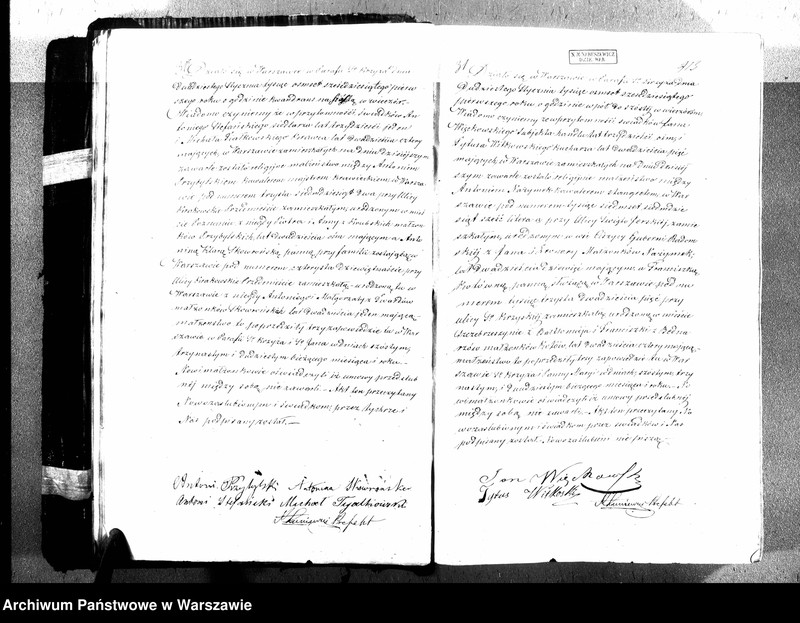 Działo się w Warszawie w Parafii Sgo Krzyża dnia
Dwudziestego Stycznia tysiąc ośmset sześćdziesiątego pierw-
szego roku o godzinie kwadrans na szóstą w wieczór.
Wiadomo czynimy że w przytomności świadków An-
toniego Stefańskiego siodlarza lat trzydzieści jeden
i Michała Krawca lat dwadzieścia cztery
mających, w Warszawie zamieszkałych na dniu dzisiejszym
zawarte zostało religijne małżeństwo między Antonim
Przybylskim Kawalerem majstrem Krawieckim w Warsza-
wie pod numerem trzysta siedmdziesiąt dwa przy Ulicy
Krakowskie Przedmieście zamieszkałym, urodzonym w mie-
ście Poznaniu z niegdy Piotra i Anny z małżon-
ków Przybylskich, lat dwadzieścia ośm mającym a Anto-
niną Skowrońską panną, przy familii zostającą w
Warszawie pod numerem czterysta dziewiętnaście przy
Ulicy Krakowskie Przedmieście zamieszkałą urodzoną tu w
Warszawie z niegdy Antoniego i Małgorzaty z
małżonków Skowrońskich lat dwadzieścia jeden mającą.
Małżeństwo to poprzedziły trzy zapowiedzie tu w War-
szawie w Parafii Sgo Krzyża i Sgo Jana w dniach szóstym,
trzynastym i dwudziestym bieżącego miesiąca i roku.
Nowi małżonkowie oświadczyli iż umowy przedślub-
nej między sobą nie zawarli. Akt ten przeczytany
Nowozaślubionym i świadkom, przez tychże i
Nas podpisany został.
Antoni Przybylski Antonina Skowrońska
Antoni Stefański Michał
Prefekt
K. KURIUSZOWICZ
415
Działo się w Warszawie w Parafii Sgo Krzyża dnia
Dwudziestego Stycznia tysiąc ośmset sześćdziesiątego
pierwszego roku o godzinie wpół do szóstej w wieczór.
Wiadomo czynimy że w przytomności świadków Jana
lat trzydzieści ośm i
Tytusa Witkowskiego Kucharza lat dwadzieścia pięć
mających w Warszawie zamieszkałych na dniu dzisiej-
szym zawarte zostało religijne małżeństwo między
Antonim Kawalerem w War-
szawie pod numerem tysiąc siedmset siedmdzie-
siąt sześć przy Ulicy Święto Jerskiej zamie-
szkałym, urodzonym w wsi Gubernii Radom-
skiej z Jana i Małżonków
lat dwadzieścia dziewięć mającym a Franciszką
panną służącą w Warszawie pod nu-
merem tysiąc trzysta dwadzieścia pięć przy
Ulicy Sto Krzyskiej zamieszkałą, urodzoną w mieście
Szczebrzeszynie z Bartłomieja i Franciszki z Bedna-
rzów małżonków lat dwadzieścia cztery mającą.
Małżeństwo to poprzedziły trzy zapowiedzie tu w War-
szawie Sgo Krzyża i Panny Maryi w dniach szóstym, trzy-
nastym i dwudziestym bieżącego miesiąca i roku. No-
wi małżonkowie oświadczyli iż umowy przedślubnej
między sobą nie zawarli. Akt ten przeczytany No-
wozaślubionym i świadkom przez świadków i Nas
podpisany został. Nowozaślubieni nie piszą.
Jan
Tytus Witkowski
Prefekt
Archiwum Państwowe w Warszawie